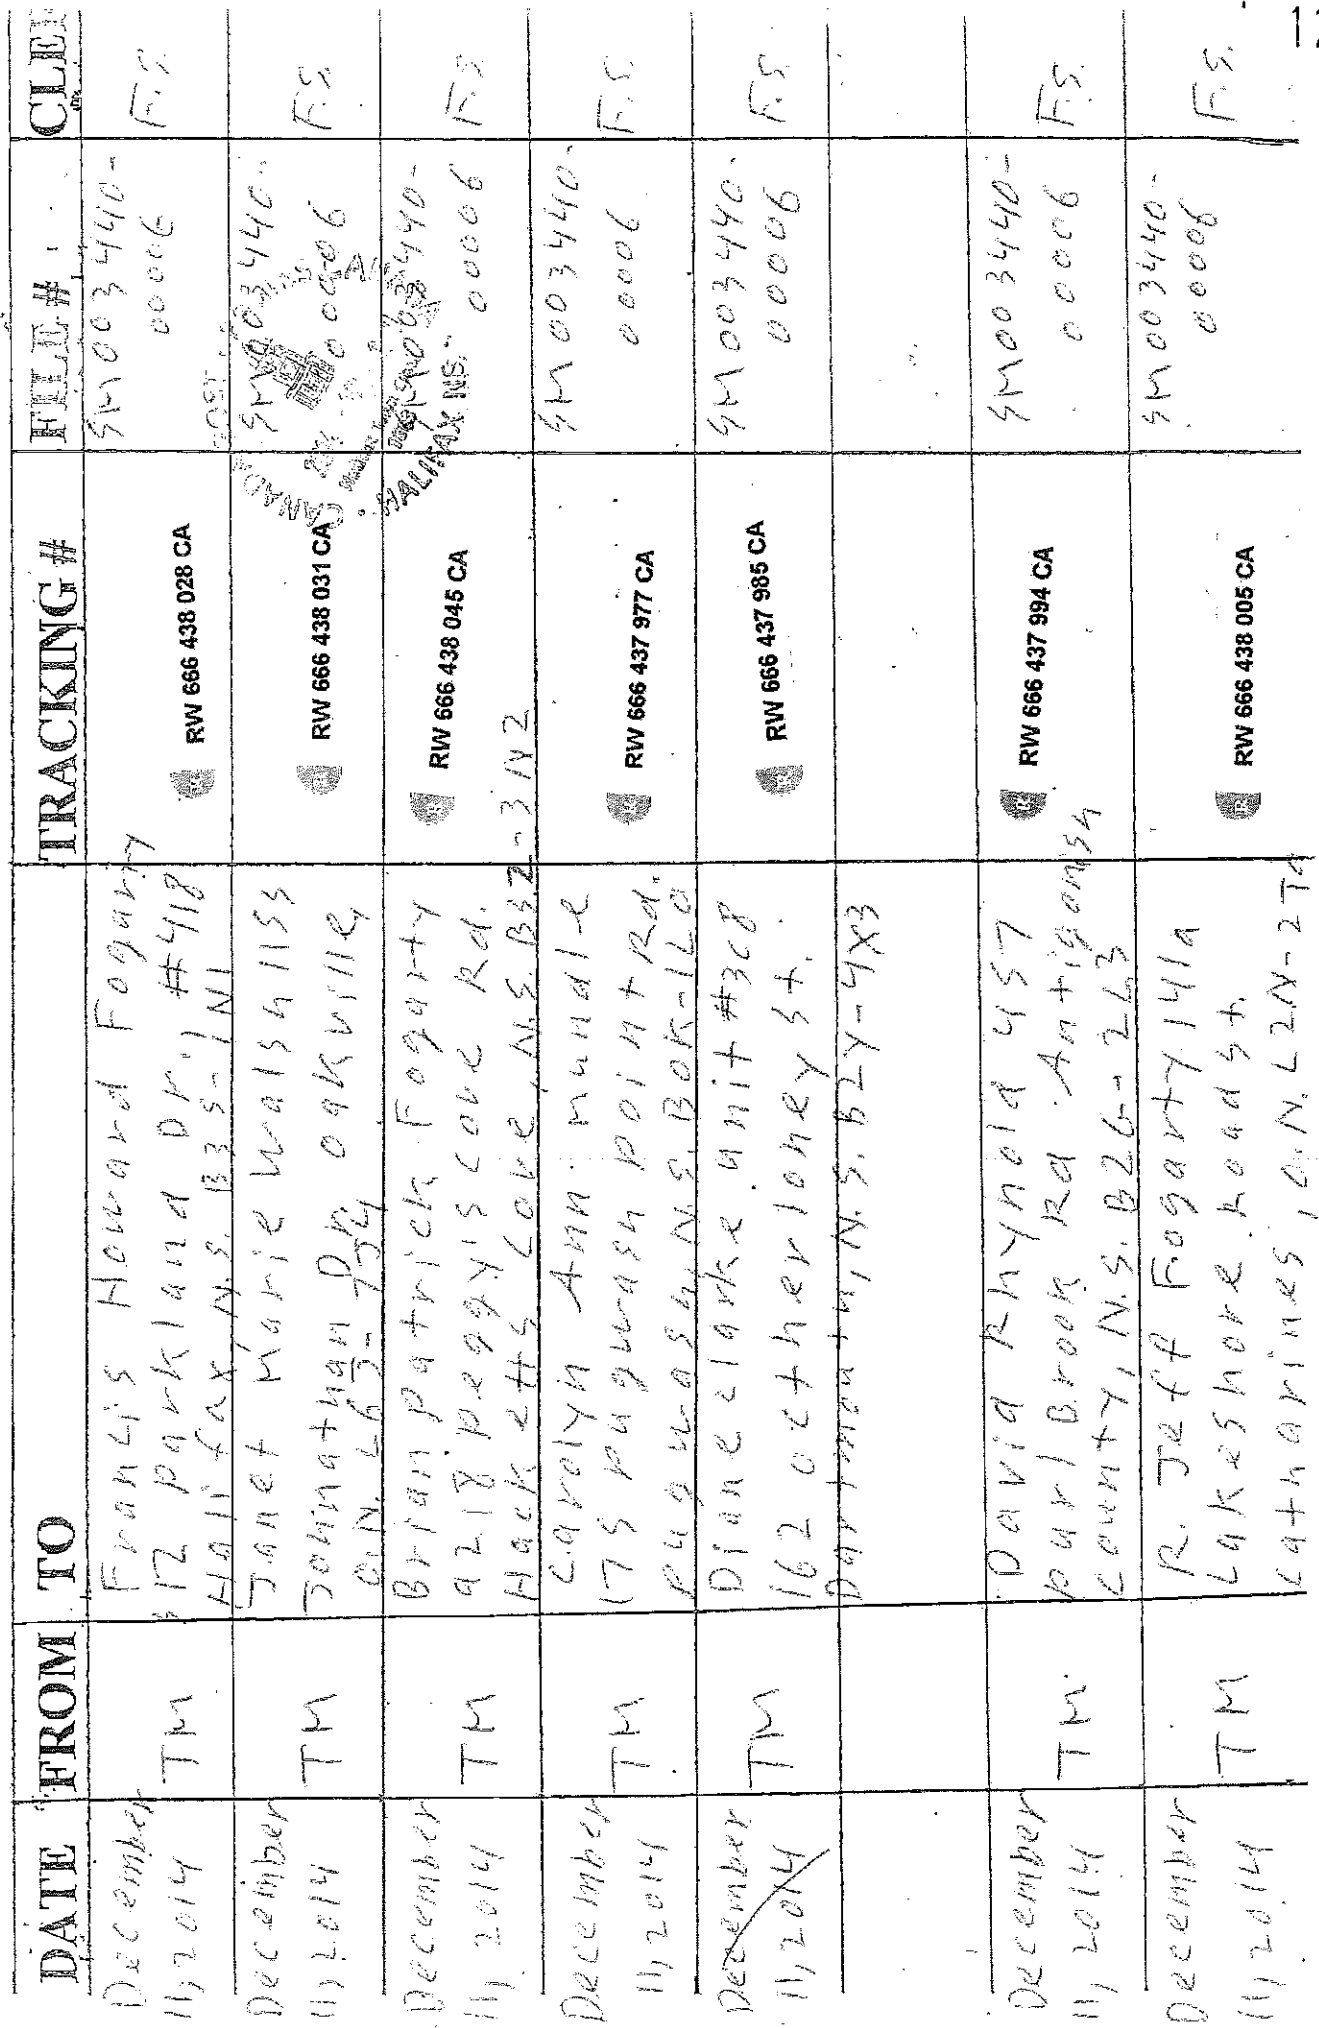 DATE FROM TO TRACKING # FILE #
December 11, 2014
TM
Francis Howard Fogarty
12 parkland Dr., #418
Halifax N.S. B3S-1N1
RW 666 438 028 CA
SM003440-
00006
F.S.
December 11, 2014
TM
Janet Marie Walsh 1155
Johnathan Dr. oakville,
O.N. L6J-7J4
RW 666 438 031 CA
SM003440-
00006
F.S.
December 11, 2014
TM
Brian patrick Fogarty
9218 peggy's cove Rd.
Hacketts Cove, N.S. B3Z-3N2
RW 666 438 045 CA
SM003440-
00006
F.S.
HALIFAX NS
December 11, 2014
TM
Carolyn Ann mundle
175 pugwash point Rd.
pugwash, N.S. B0K-1L0
RW 666 437 977 CA
SM003440-
00006
F.S.
December 11, 2014
TM
Diane clarke unit #308
162 octherloney st.
Dartmouth, N.S. B2Y-4X3
RW 666 437 985 CA
SM003440-
00006
F.S.
December 11, 2014
TM
David Rhynold 457
purl Brook Rd Antigonish
County, N.S. B2G-2L3
RW 666 437 994 CA
SM003440-
00006
F.S.
December 11, 2014
TM
R. Jeff Fogarty 141a
Lakeshore Road st.
Catharines, O.N. L2N-2T
RW 666 438 005 CA
SM003440-
00006
F.S.